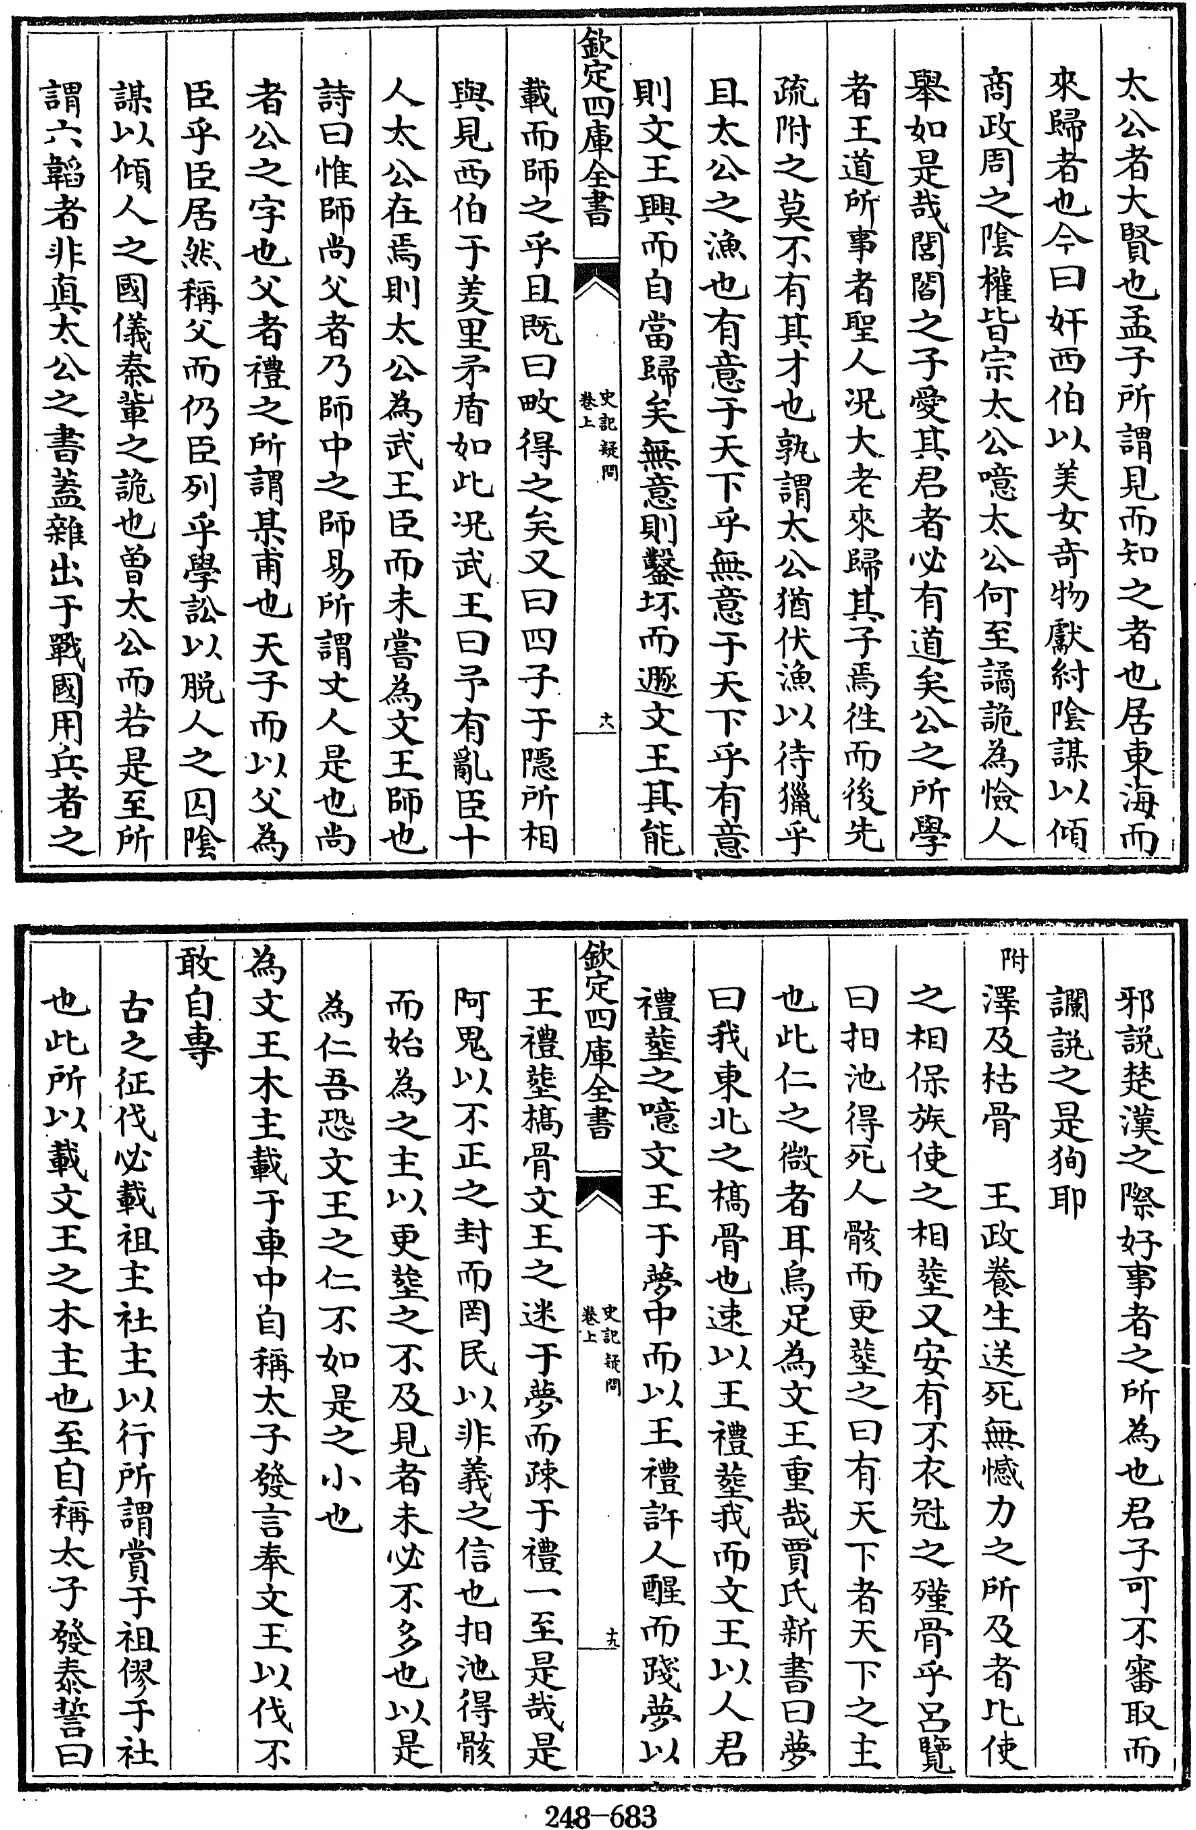 太公者大賢也孟子所謂見而知之者也居東海而
來歸者也今曰奸西伯以美女奇物獻紂陰謀以傾
商政周之陰權皆宗太公噫太公何至譎詭為憸人
舉如是哉閭閻之子愛其君者必有道矣公之所學
者王道所事者聖人况大老來歸其子焉徃而後先
疏附之莫不有其才也孰謂太公猶伏漁以待獵乎
且太公之漁也有意于天下乎無意于天下乎有意
則文王興而自當歸矣無意則鑿坏而遯文王其能
欽定四庫全書
史記疑問
卷上
十八
載而師之乎且既曰畋得之矣又曰四子于隱所相
與見西伯于羑里矛盾如此况武王曰予有亂臣十
人太公在焉則太公為武王臣而未嘗為文王師也
詩曰惟師尚父者乃師中之師易所謂丈人是也尚
者公之字也父者禮之所謂某甫也天子而以父為
臣乎臣居然稱父而仍臣列乎學訟以脱人之囚陰
謀以傾人之國儀秦輩之詭也曽太公而若是至所
謂六韜者非真太公之書蓋雜出于戰國用兵者之
邪説楚漢之際好事者之所為也君子可不審取而
讕説之是狥耶
附 澤及枯骨 王政養生送死無憾力之所及者比使
之相保族使之相塟又安有不衣冠之殣骨乎呂覽
曰抇池得死人骸而更塟之曰有天下者天下之主
也此仁之微者耳烏足為文王重哉賈氏新書曰夢
曰我東北之槁骨也速以王禮塟我而文王以人君
禮塟之噫文王于夢中而以王禮許人醒而踐夢以
欽定四庫全書
史記疑問
卷上
十九
王禮塟槁骨文王之迷于夢而疎于禮一至是哉是
阿鬼以不正之封而罔民以非義之信也抇池得骸
而始為之主以更塟之不及見者未必不多也以是
為仁吾恐文王之仁不如是之小也
為文王木主載于車中自稱太子發言奉文王以伐不
敢自專
古之征伐必載祖主社主以行所謂賞于祖僇于社
也此所以載文王之木主也至自稱太子發泰誓曰
248-683